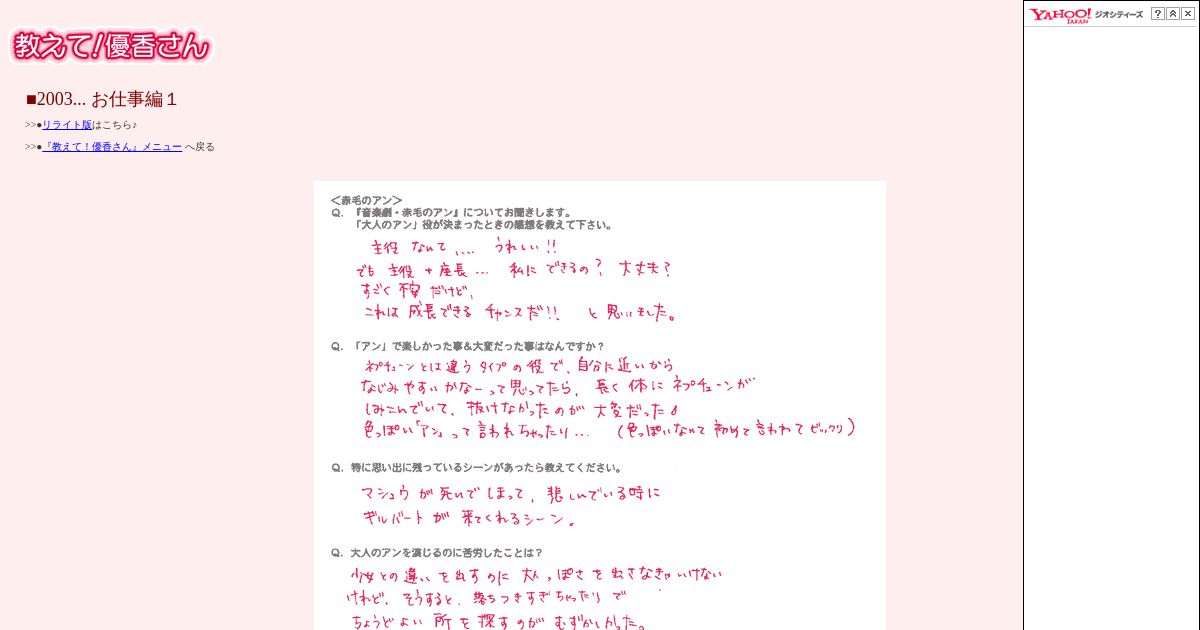 教えて!優香さん
YAHOO! JAPAN ジオシティーズ
■2003... お仕事編１
>>●リライト版はこちら♪
>>●『教えて！優香さん』メニュー へ戻る
＜赤毛のアン＞
Q. 『音楽劇・赤毛のアン』についてお聞きします。
「大人のアン」役が決まったときの感想を教えて下さい。
主役 なんて .... うれしい !!
でも 主役 + 座長 ... 私に できるの？ 大丈夫？
すごく 不安 だけど、
これは 成長できる チャンスだ!!、 と 思いました。
Q. 「アン」で楽しかった事＆大変だった事はなんですか？
ネプチューンとは違う タイプの役で、自分に近いから
なじみやすいかなーって思ってたら、長く 体に ネプチューンが
しみこんでいて、抜けなかったのが 大変だった！
色っぽい「アン」って 言われちゃったり... (色っぽいなんて 初めて 言われて ビックリ)
Q. 特に思い出に残っているシーンがあったら教えてください。
マシュウ が 死んで しまって、悲しんでいる時に
ギルバート が 来てくれるシーン。
Q. 大人のアンを演じるのに苦労したことは？
少女との違いを出すのに 大人っぽさを 出さなきゃいけない
けれど、そうすると、落ちつきすぎちゃったり で
ちょうどよい 所 を 探すのが むずかしかった。